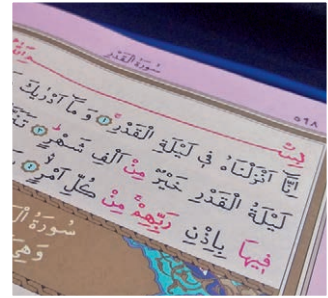 سُورَةُ الْقَدْرِ
٥٩٨
إِنَّا أَنْزَلْنَاهُ فِي لَيْلَةِ الْقَدْرِ ١ وَمَا أَدْرٰيكَ
لَيْلَةُ الْقَدْرِ خَيْرٌ مِنْ أَلْفِ شَهْرٍ ٣
فِيهَا بِإِذْنِ رَبِّهِمْ مِنْ كُلِّ أَمْرٍ ٤
سُورَةُ
وَهِيَ